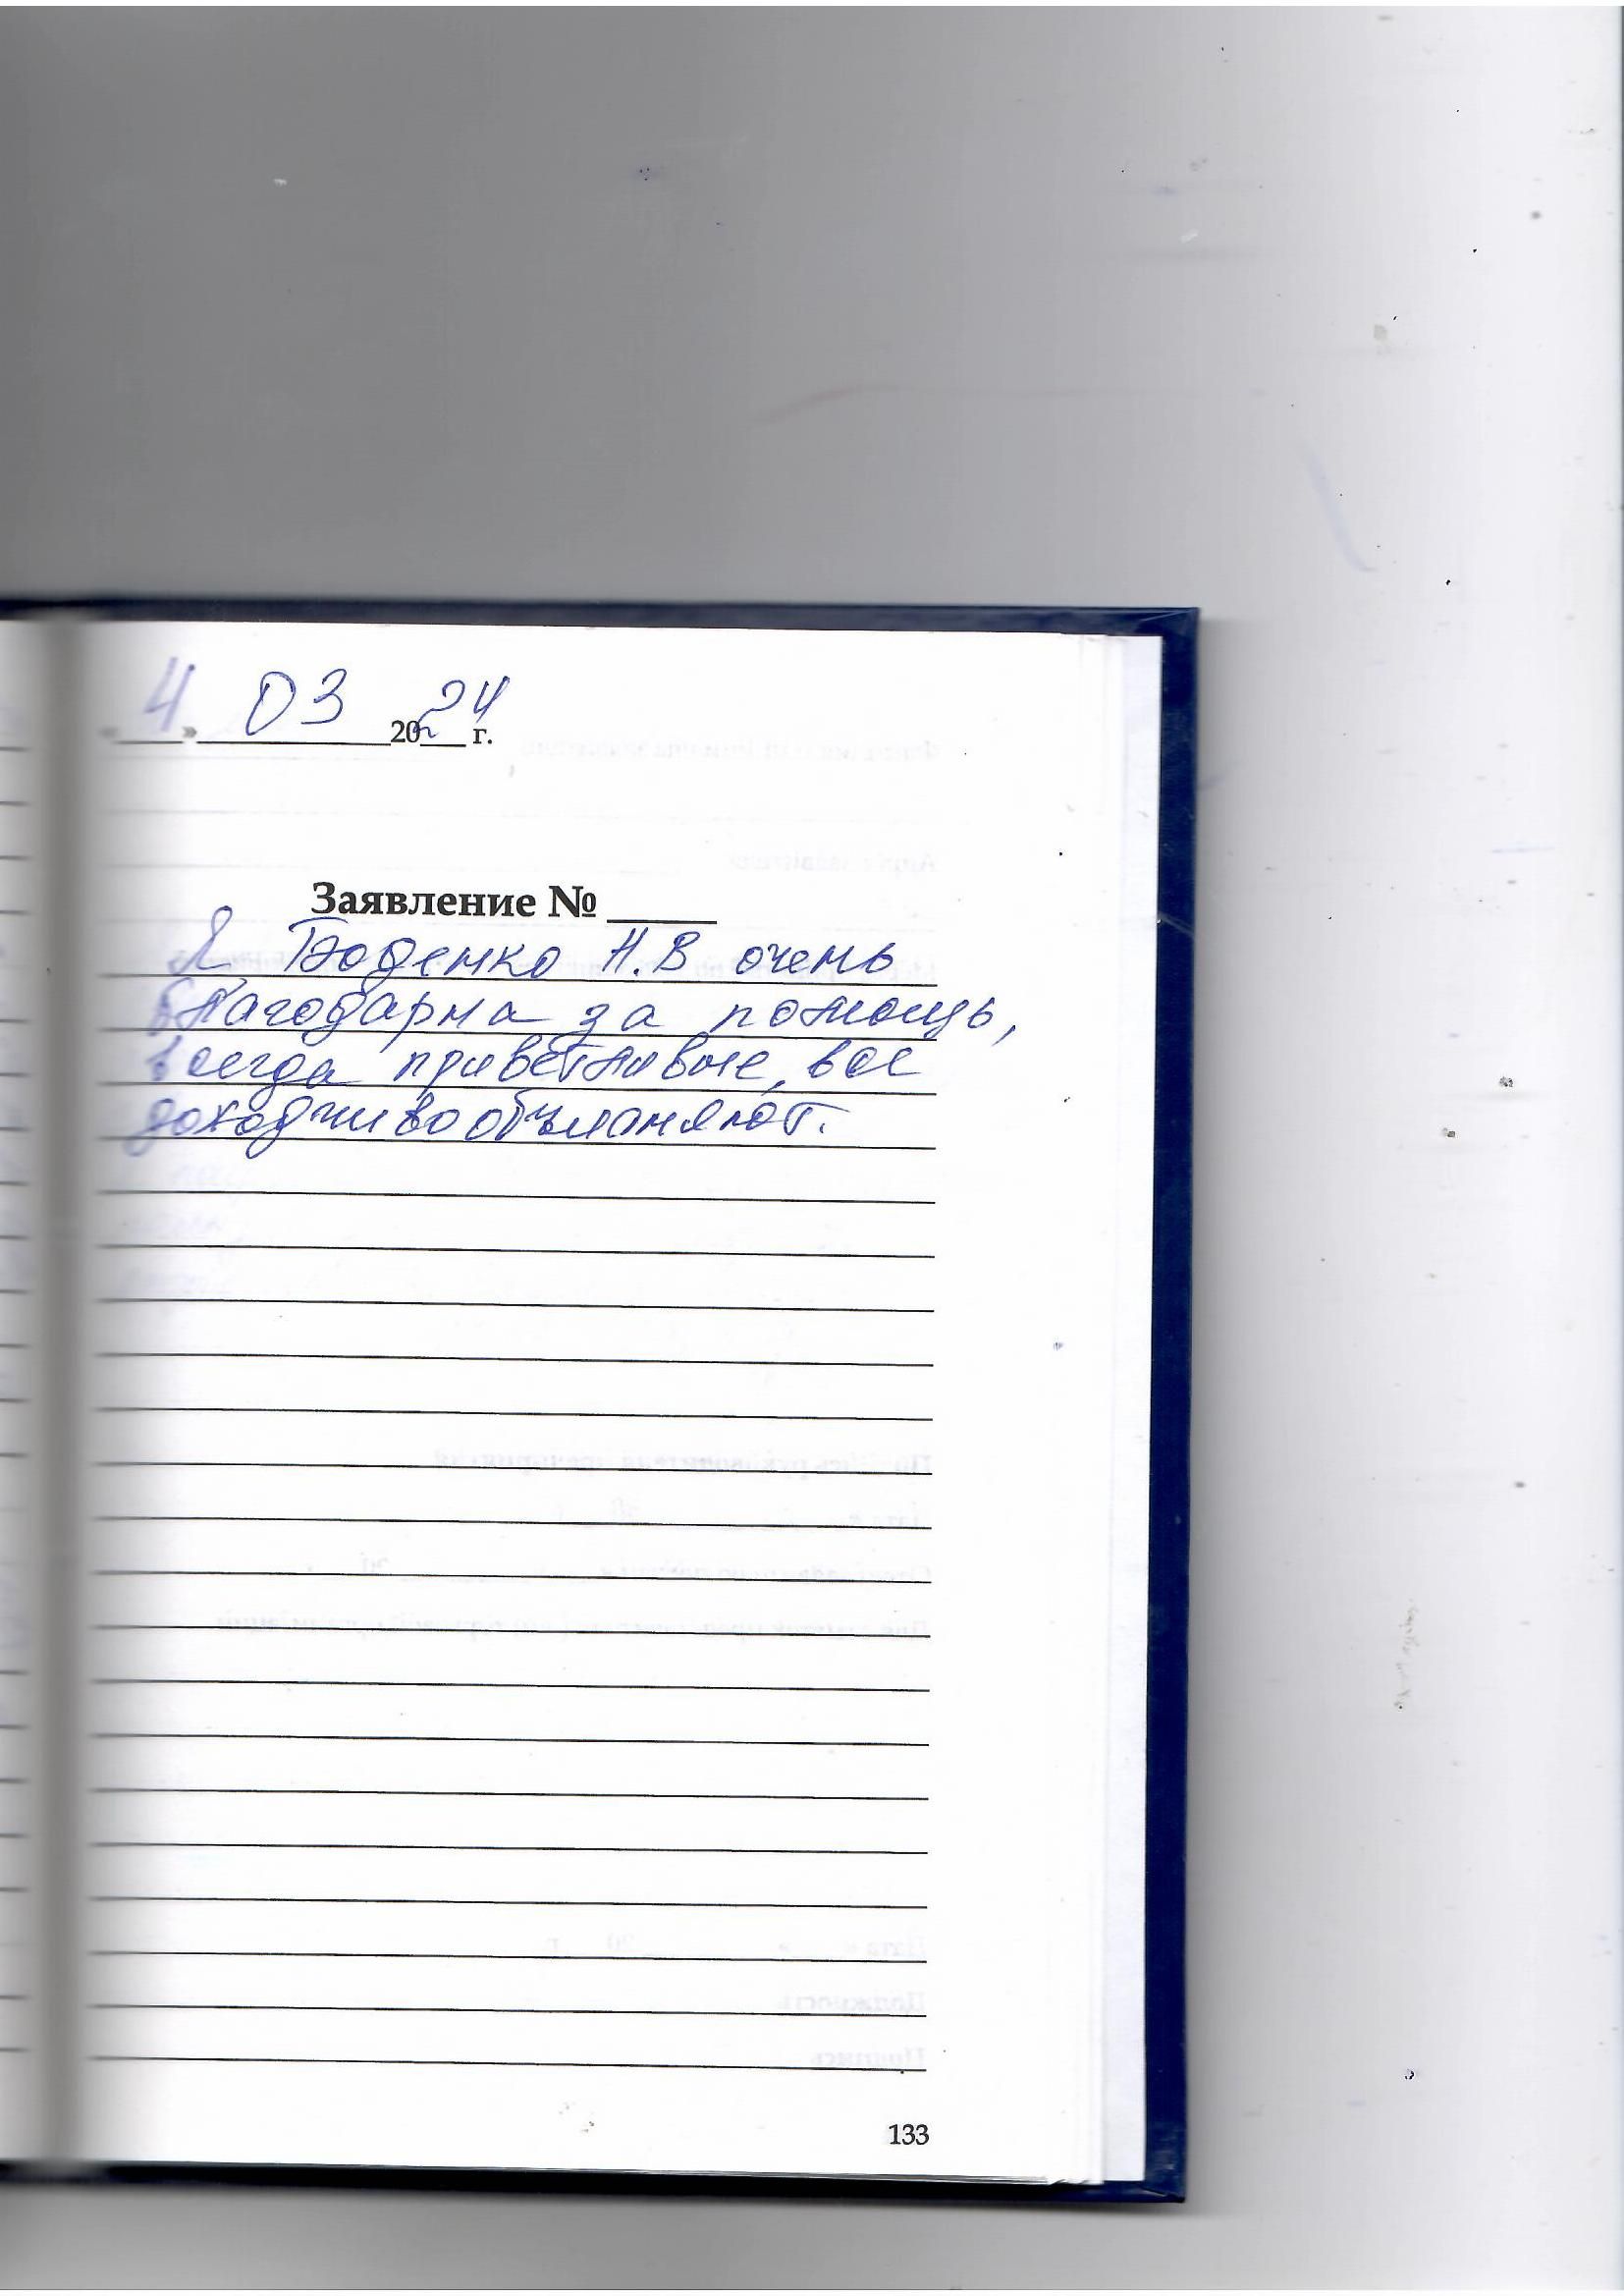 «4» 03 2024 г.
Заявление № ____
Я Боденко Н.В очень
благодарна за помощь,
всегда приветливые, все
доходчиво объясняют.
133